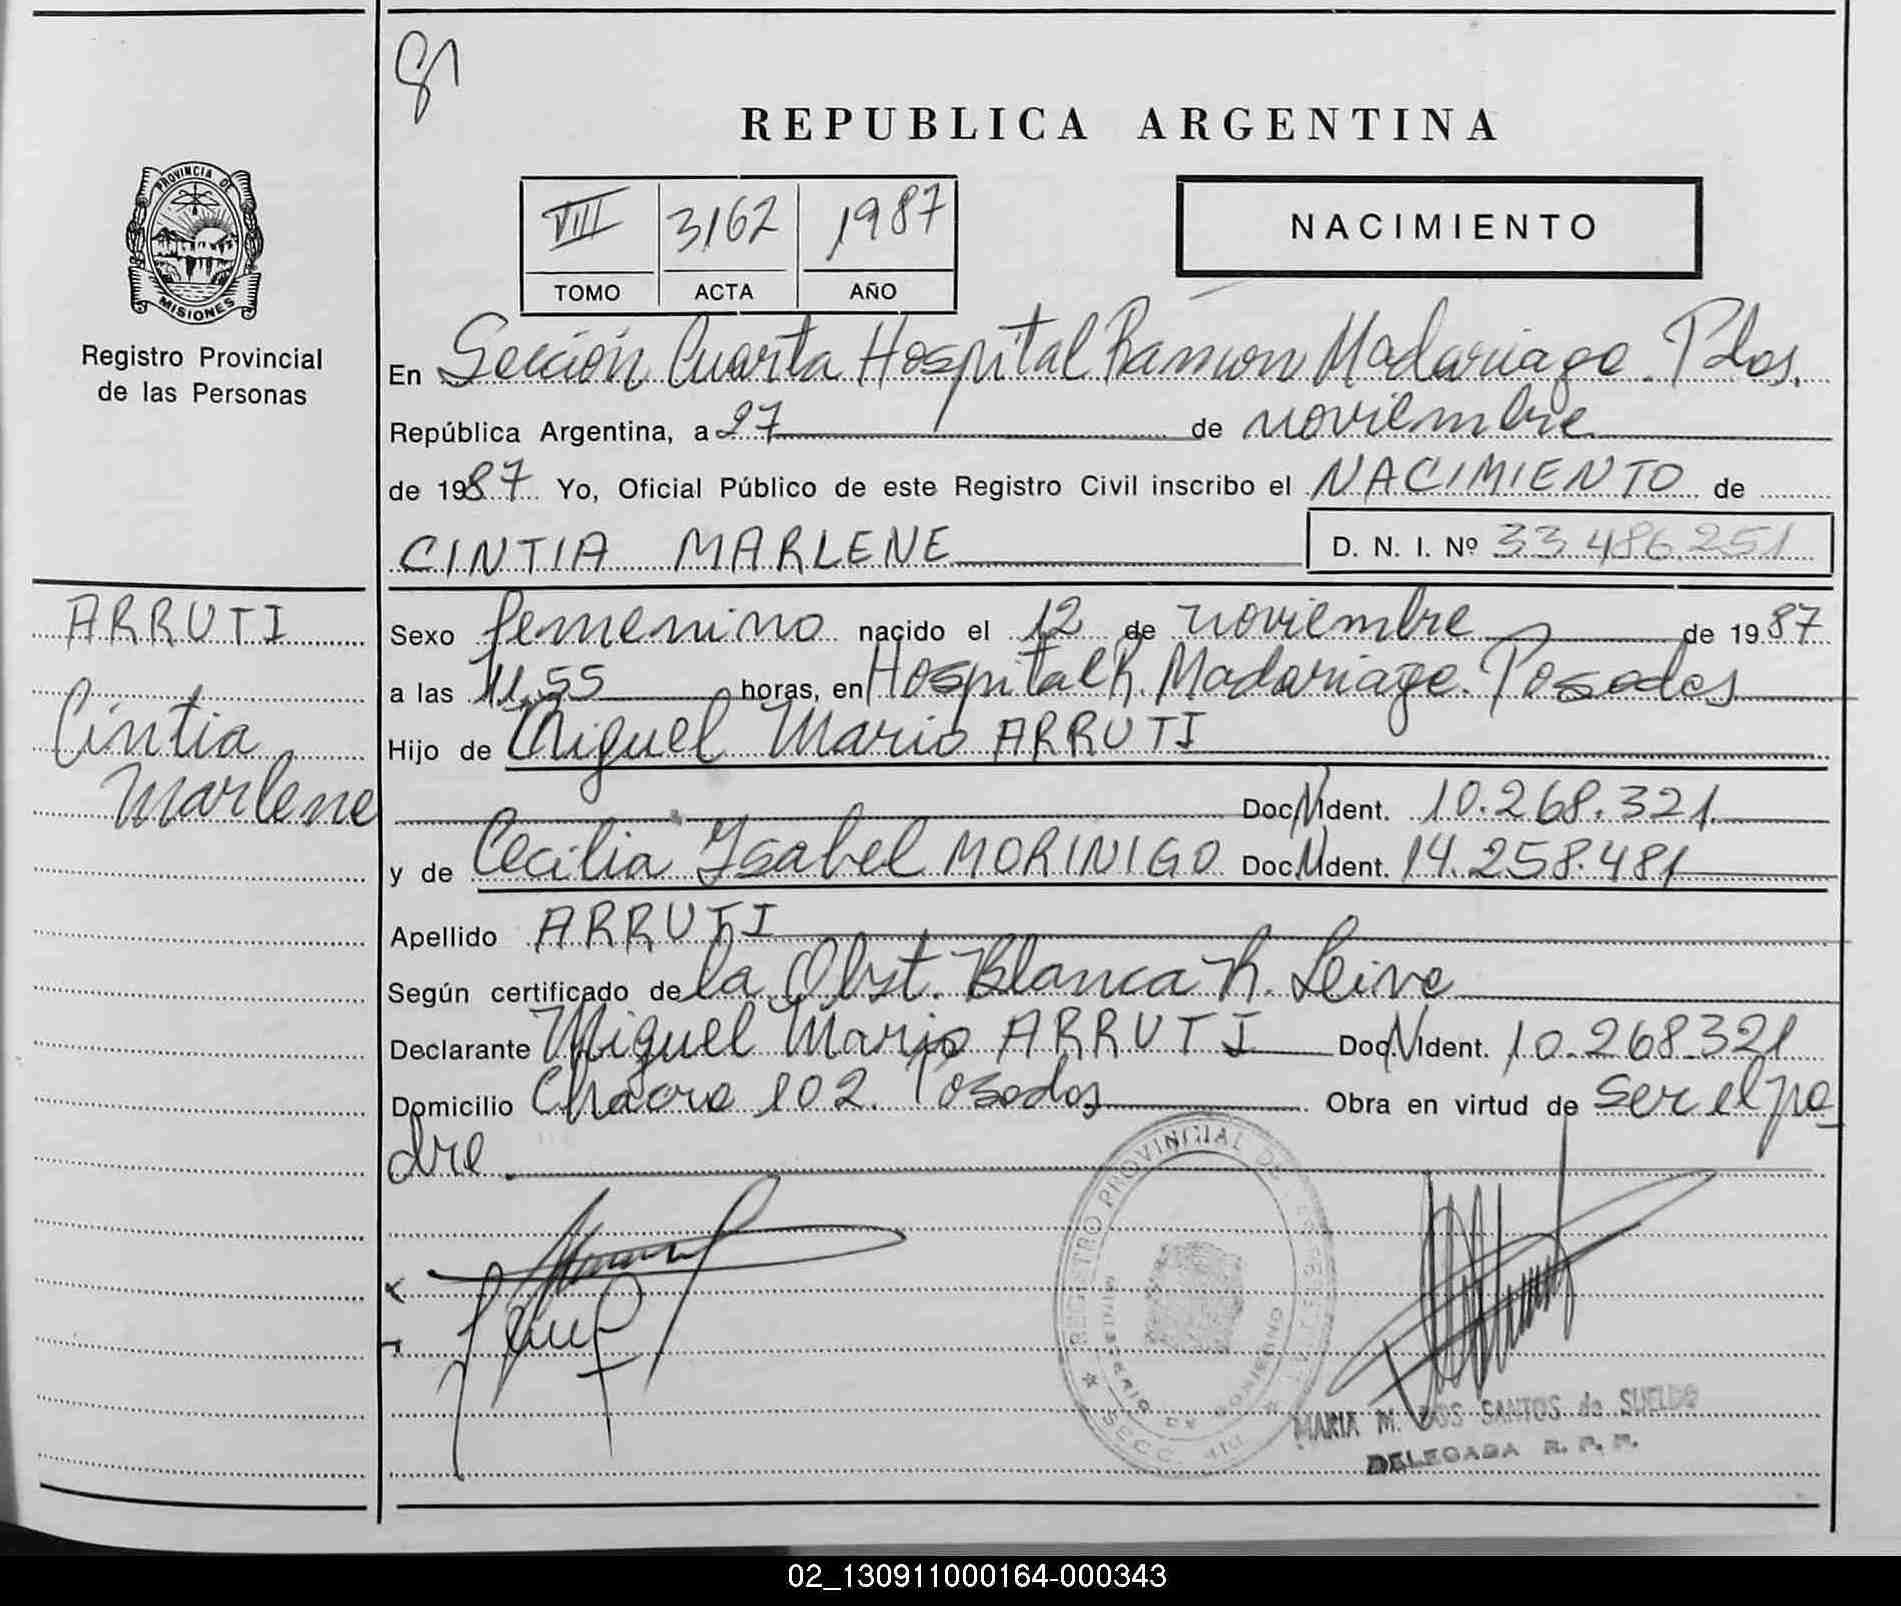 81
REPUBLICA ARGENTINA
PROVINCIA DE
MISIONES
Registro Provincial
de las Personas
VIII 3162 1987
TOMO ACTA AÑO
NACIMIENTO
En Sección Cuarta Hospital Ramon Madariaga. Pdas.
República Argentina, a 27 de noviembre
de 1987 Yo, Oficial Público de este Registro Civil inscribo el NACIMIENTO de
CINTIA MARLENE
D. N. I. Nº 33 486 251
ARRUTI
Cintia
Marlene
Sexo femenino nacido el 12 de noviembre de 1987
a las 11,55 horas, en Hospital R. Madariaga. Posadas
Hijo de Miguel Mario ARRUTI
Doc. N. Ident. 10.268.321.
y de Cecilia Ysabel MORINIGO Doc. N. Ident. 14.258.481
Apellido ARRUTI
Según certificado de la Obst. Blanca R. Leiva
Declarante Miguel Mario ARRUTI Doc. N. Ident. 10.268.321
Domicilio Chacra 102. Posadas Obra en virtud de ser el pa
dre
REGISTRO PROVINCIAL DE
MARIA M. DOS SANTOS de SUELDO
DELEGADA R. P. P.
02_130911000164-000343